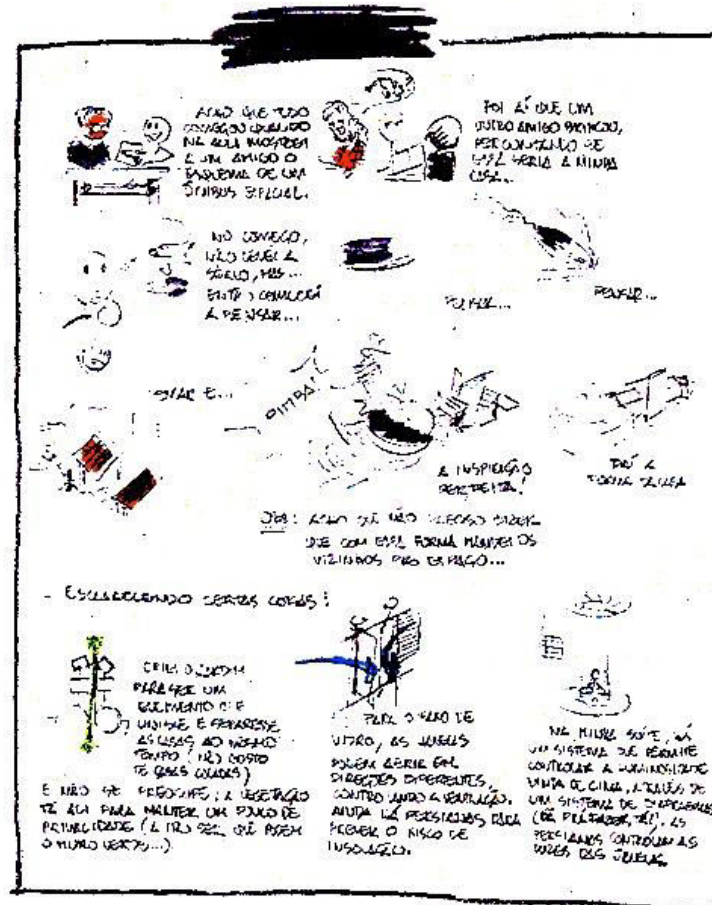 ACHO QUE TUDO
COMEÇOU QUANDO
NA AULA MOSTREI
A UM AMIGO O
ESQUEMA DE UM
ÔNIBUS ESPACIAL.
FOI AÍ QUE UM
OUTRO AMIGO BRINCOU,
PERGUNTANDO SE
ESSA SERIA A MINHA
CASA...
NO COMEÇO,
NÃO LEVEI A
SÉRIO, MAS...
COMECEI
A PENSAR...
PENSAR...
PENSAR...
PENSAR E...
PIMBA!
A INSPIRAÇÃO
PERFEITA!
DAÍ A
FORMA DA CASA
OBS: ACHO QUE NÃO PRECISO DIZER
QUE COM ESSA FORMA MANDEI OS
VIZINHOS PRO ESPAÇO...
- ESCLARECENDO CERTAS COISAS:
CRIEI O JARDIM
PARA SER UM
ELEMENTO QUE
UNISSE E SEPARASSE
AS CASAS AO MESMO
TEMPO (NÃO GOSTO
DE CASAS COLADAS)
E NÃO SE PREOCUPE: A VEGETAÇÃO
TÁ ALI PARA MANTER UM POUCO DE
PRIVACIDADE (A NÃO SER QUE PODEM
O MURO VERDE...)
PARA O PANO DE
VIDRO, AS JANELAS
PODEM ABRIR EM
DIREÇÕES DIFERENTES,
CONTROLANDO A VENTILAÇÃO.
AINDA HÁ PERSIANAS PARA
PREVER O RISCO DE
INSOLAÇÃO.
NA MINHA SUÍTE, HÁ
UM SISTEMA QUE PERMITE
CONTROLAR A LUMINOSIDADE
VINDA DE CIMA, ATRAVÉS DE
UM SISTEMA DE
(DÁ PRA FAZER, TÁ!). AS
PERSIANAS CONTROLAM AS
LUZES DAS JANELAS.